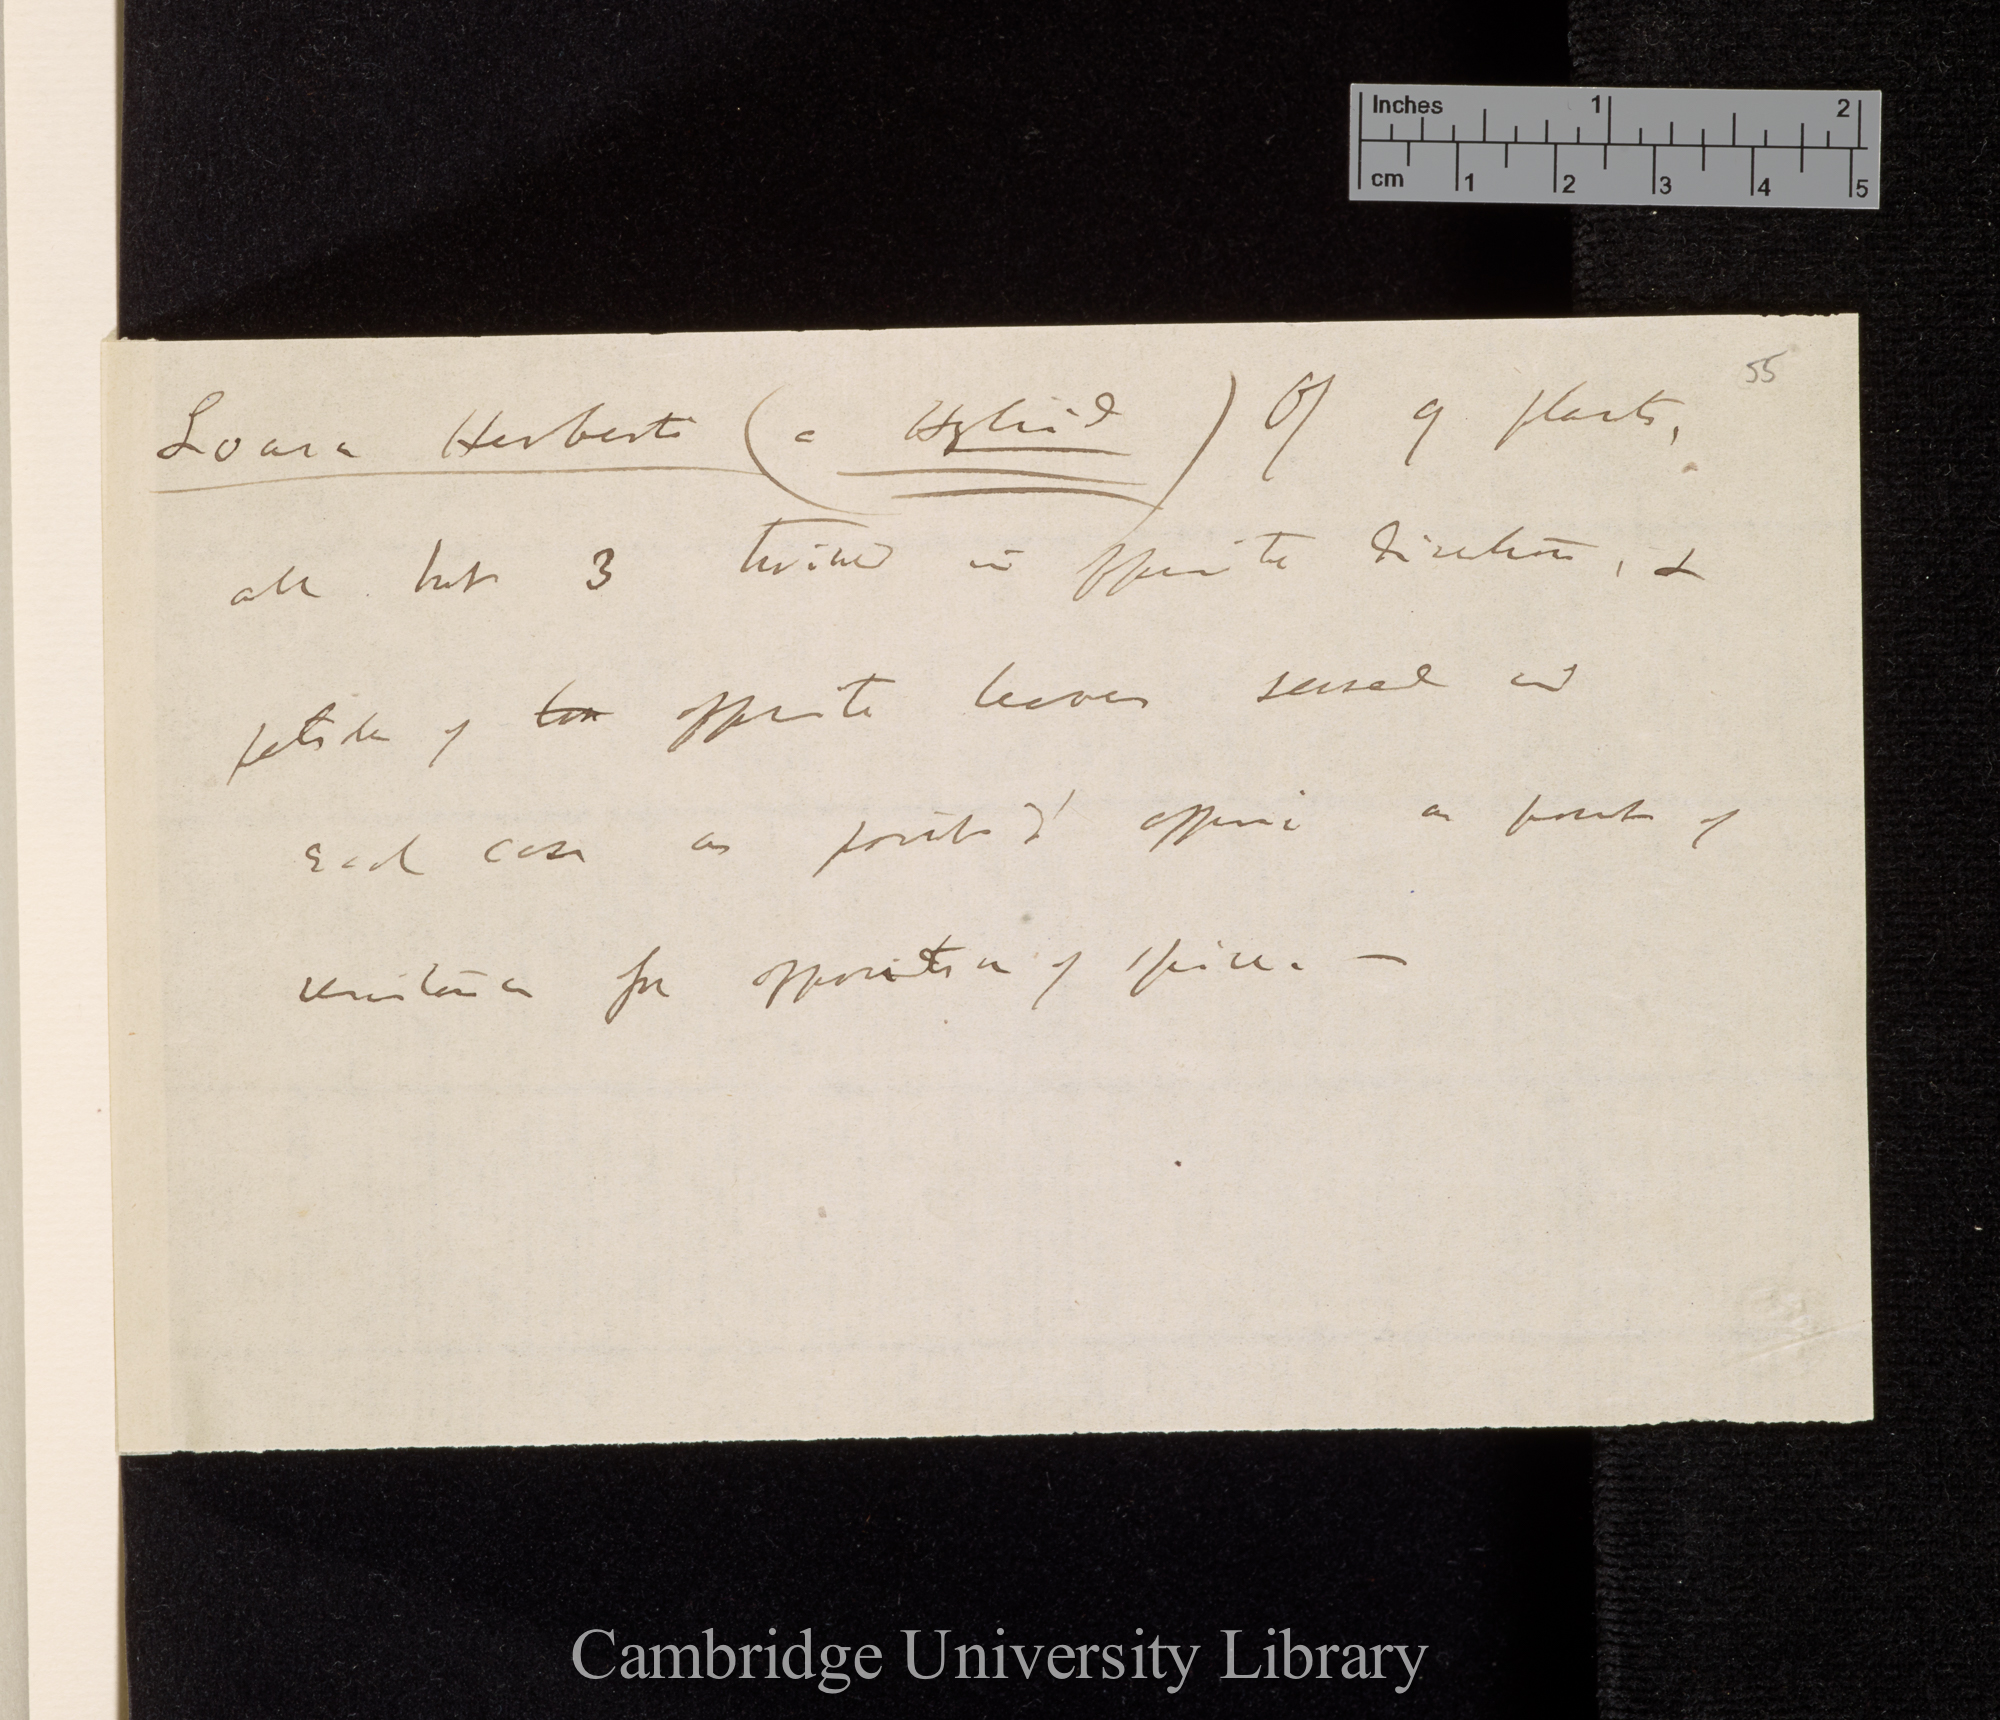 Inches 1 2
cm 1 2 3 4 5
55
Loasa Herberti (a Hybrid) Of 9 plants,
all but 3 twined in opposite directions, &
petioles of two opposite leaves served in
each case as points of as points of
resistance for opposition of spire. —
Cambridge University Library